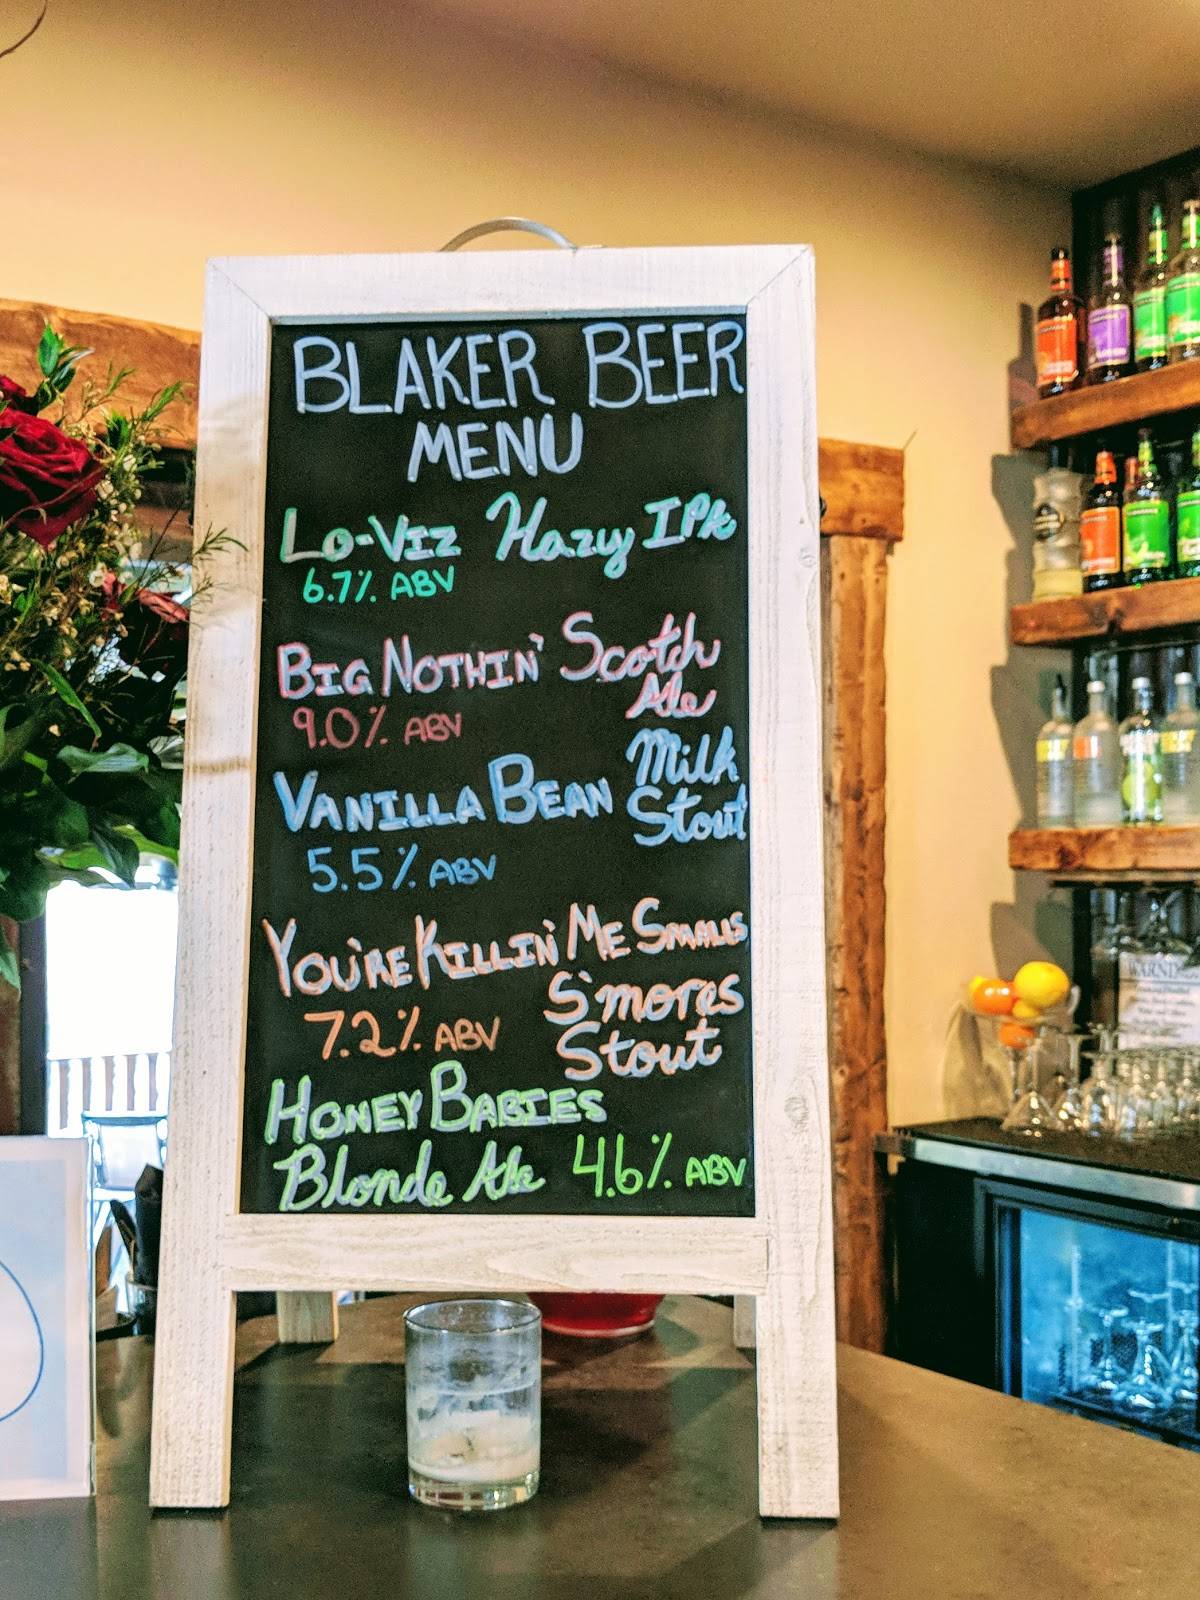 BLAKER BEER
MENU
LO-VIZ Hazy IPA
6.7% ABV
BIG NOTHIN' Scotch
Ale
9.0% ABV
VANILLA BEAN Milk
Stout
5.5% ABV
YOU'RE KILLIN' ME SMALLS
S'mores
Stout
7.2% ABV
HONEY BABIES
Blonde Ale 4.6% ABV